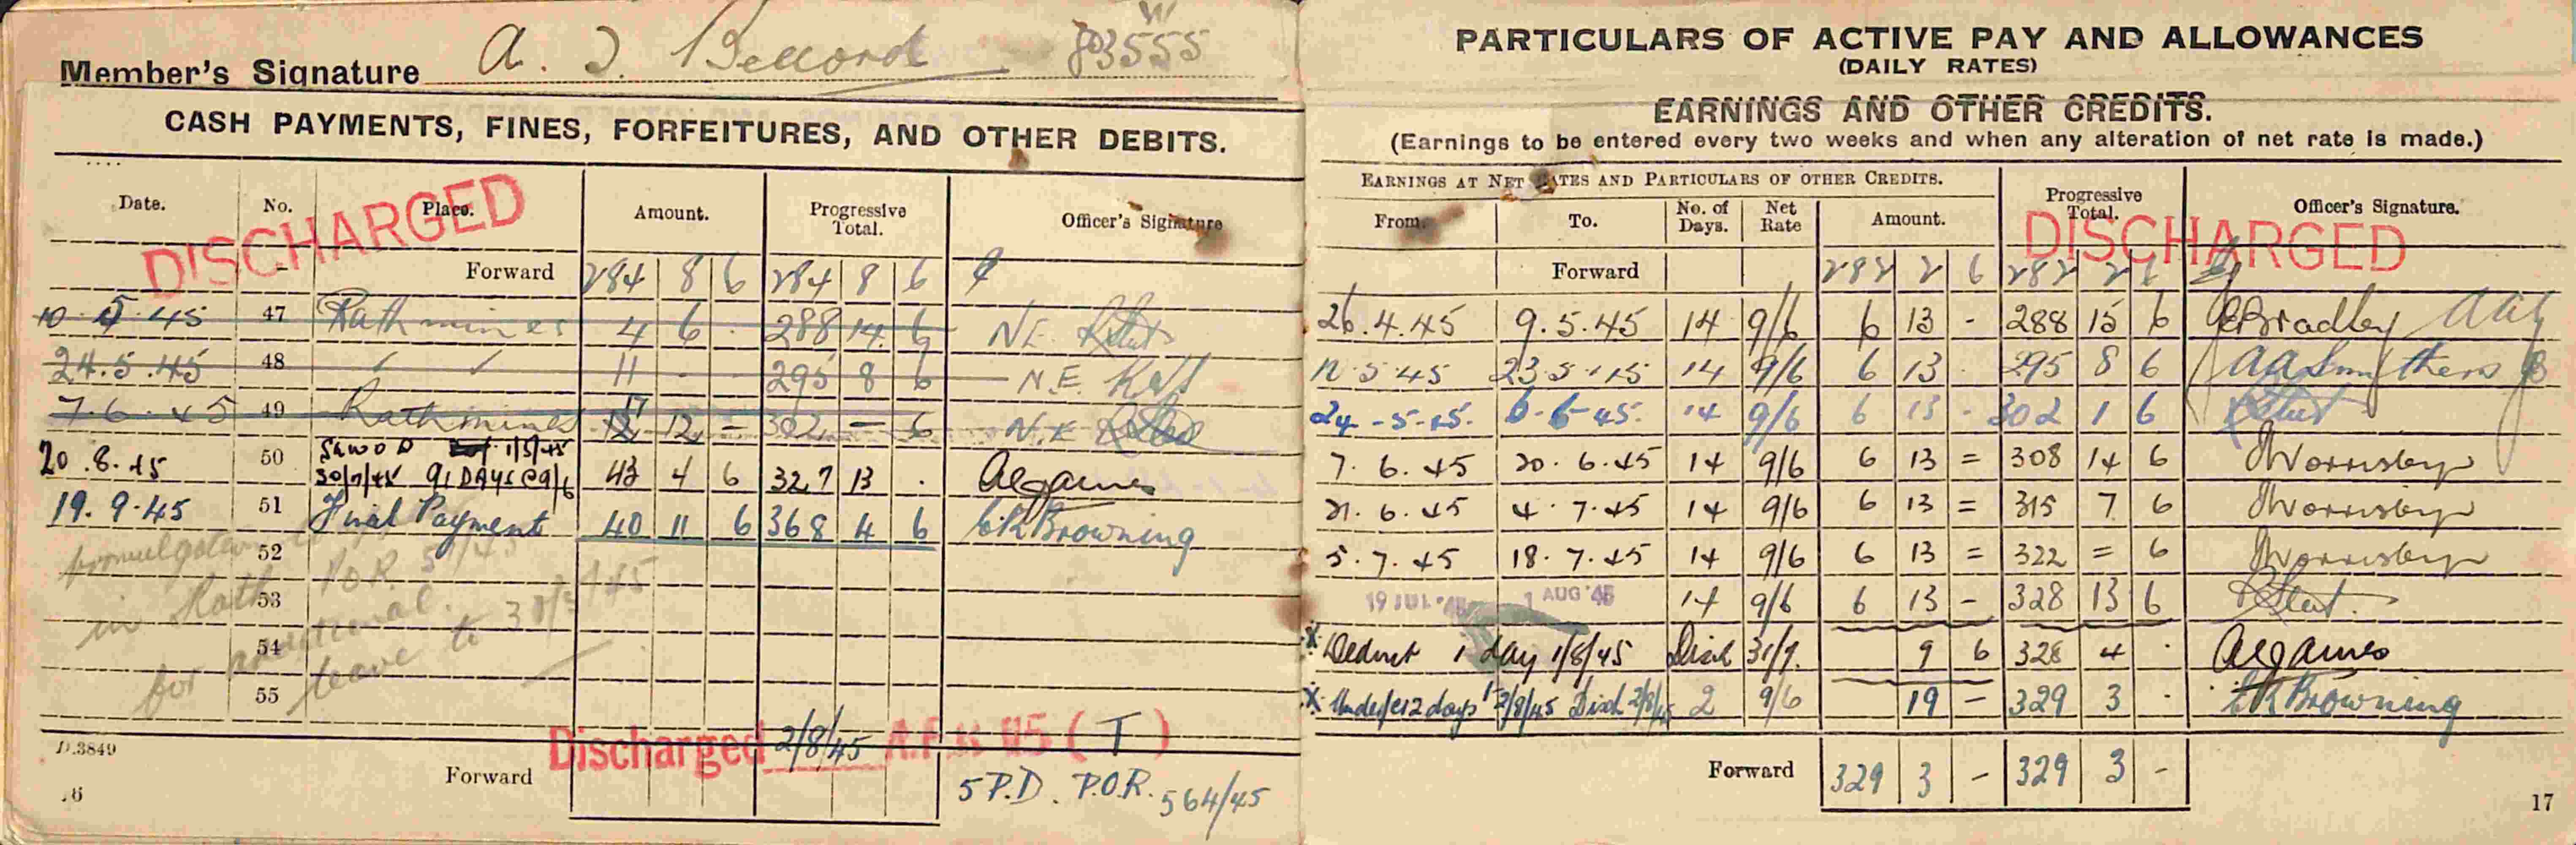 Member's Signature A. J. Bellord 803555
W
CASH PAYMENTS, FINES, FORFEITURES, AND OTHER DEBITS.
Date. No. Place. Amount. Progressive Total. Officer's Signature
DISCHARGED
Forward 284 8 6 284 8 6
10.5.45 47 Rathmines 4 6 . 288 14 6 N.E.
24.5.45 48 ✓ ✓ 11 - 295 8 6 N.E.
7.6.45 49 Rathmines 12 - 302 - 6 N.E.
20.8.45 50 1/5/45
30/7/45 91 DAYS @ 9/6 43 4 6 327 13 .
19.9.45 51 Final Payment 40 11 6 368 4 6 Browning
52
in Rath P.O.R.
53
for additional
54
leave to
55
Discharged 2/8/45 A.F.R 115 (T)
D.3849
Forward
5 P.D. P.O.R. 564/45
PARTICULARS OF ACTIVE PAY AND ALLOWANCES
(DAILY RATES)
EARNINGS AND OTHER CREDITS.
(Earnings to be entered every two weeks and when any alteration of net rate is made.)
EARNINGS AT NET RATES AND PARTICULARS OF OTHER CREDITS.
From. To. No. of Days. Net Rate Amount. Progressive Total. Officer's Signature.
DISCHARGED
Forward 282 2 6 282 2 6
26.4.45 9.5.45 14 9/6 6 13 - 288 15 6 Bradley
10.5.45 23.5.45 14 9/6 6 13 . 295 8 6 AA Smithers
24-5-45. 6-6-45. 14 9/6 6 13 - 302 1 6
7.6.45 20.6.45 14 9/6 6 13 = 308 14 6
21.6.45 4.7.45 14 9/6 6 13 = 315 7 6
5.7.45 18.7.45 14 9/6 6 13 = 322 = 6
19 JUL '45 1 AUG '45 14 9/6 6 13 - 328 13 6
x Deduct 1 day 1/8/45 Disch 31/7. 9 6 328 4 .
x 2 days 2/8/45 Disch 2/8/45 2 9/6 19 - 329 3 . Browning
Forward 329 3 - 329 3 -
17